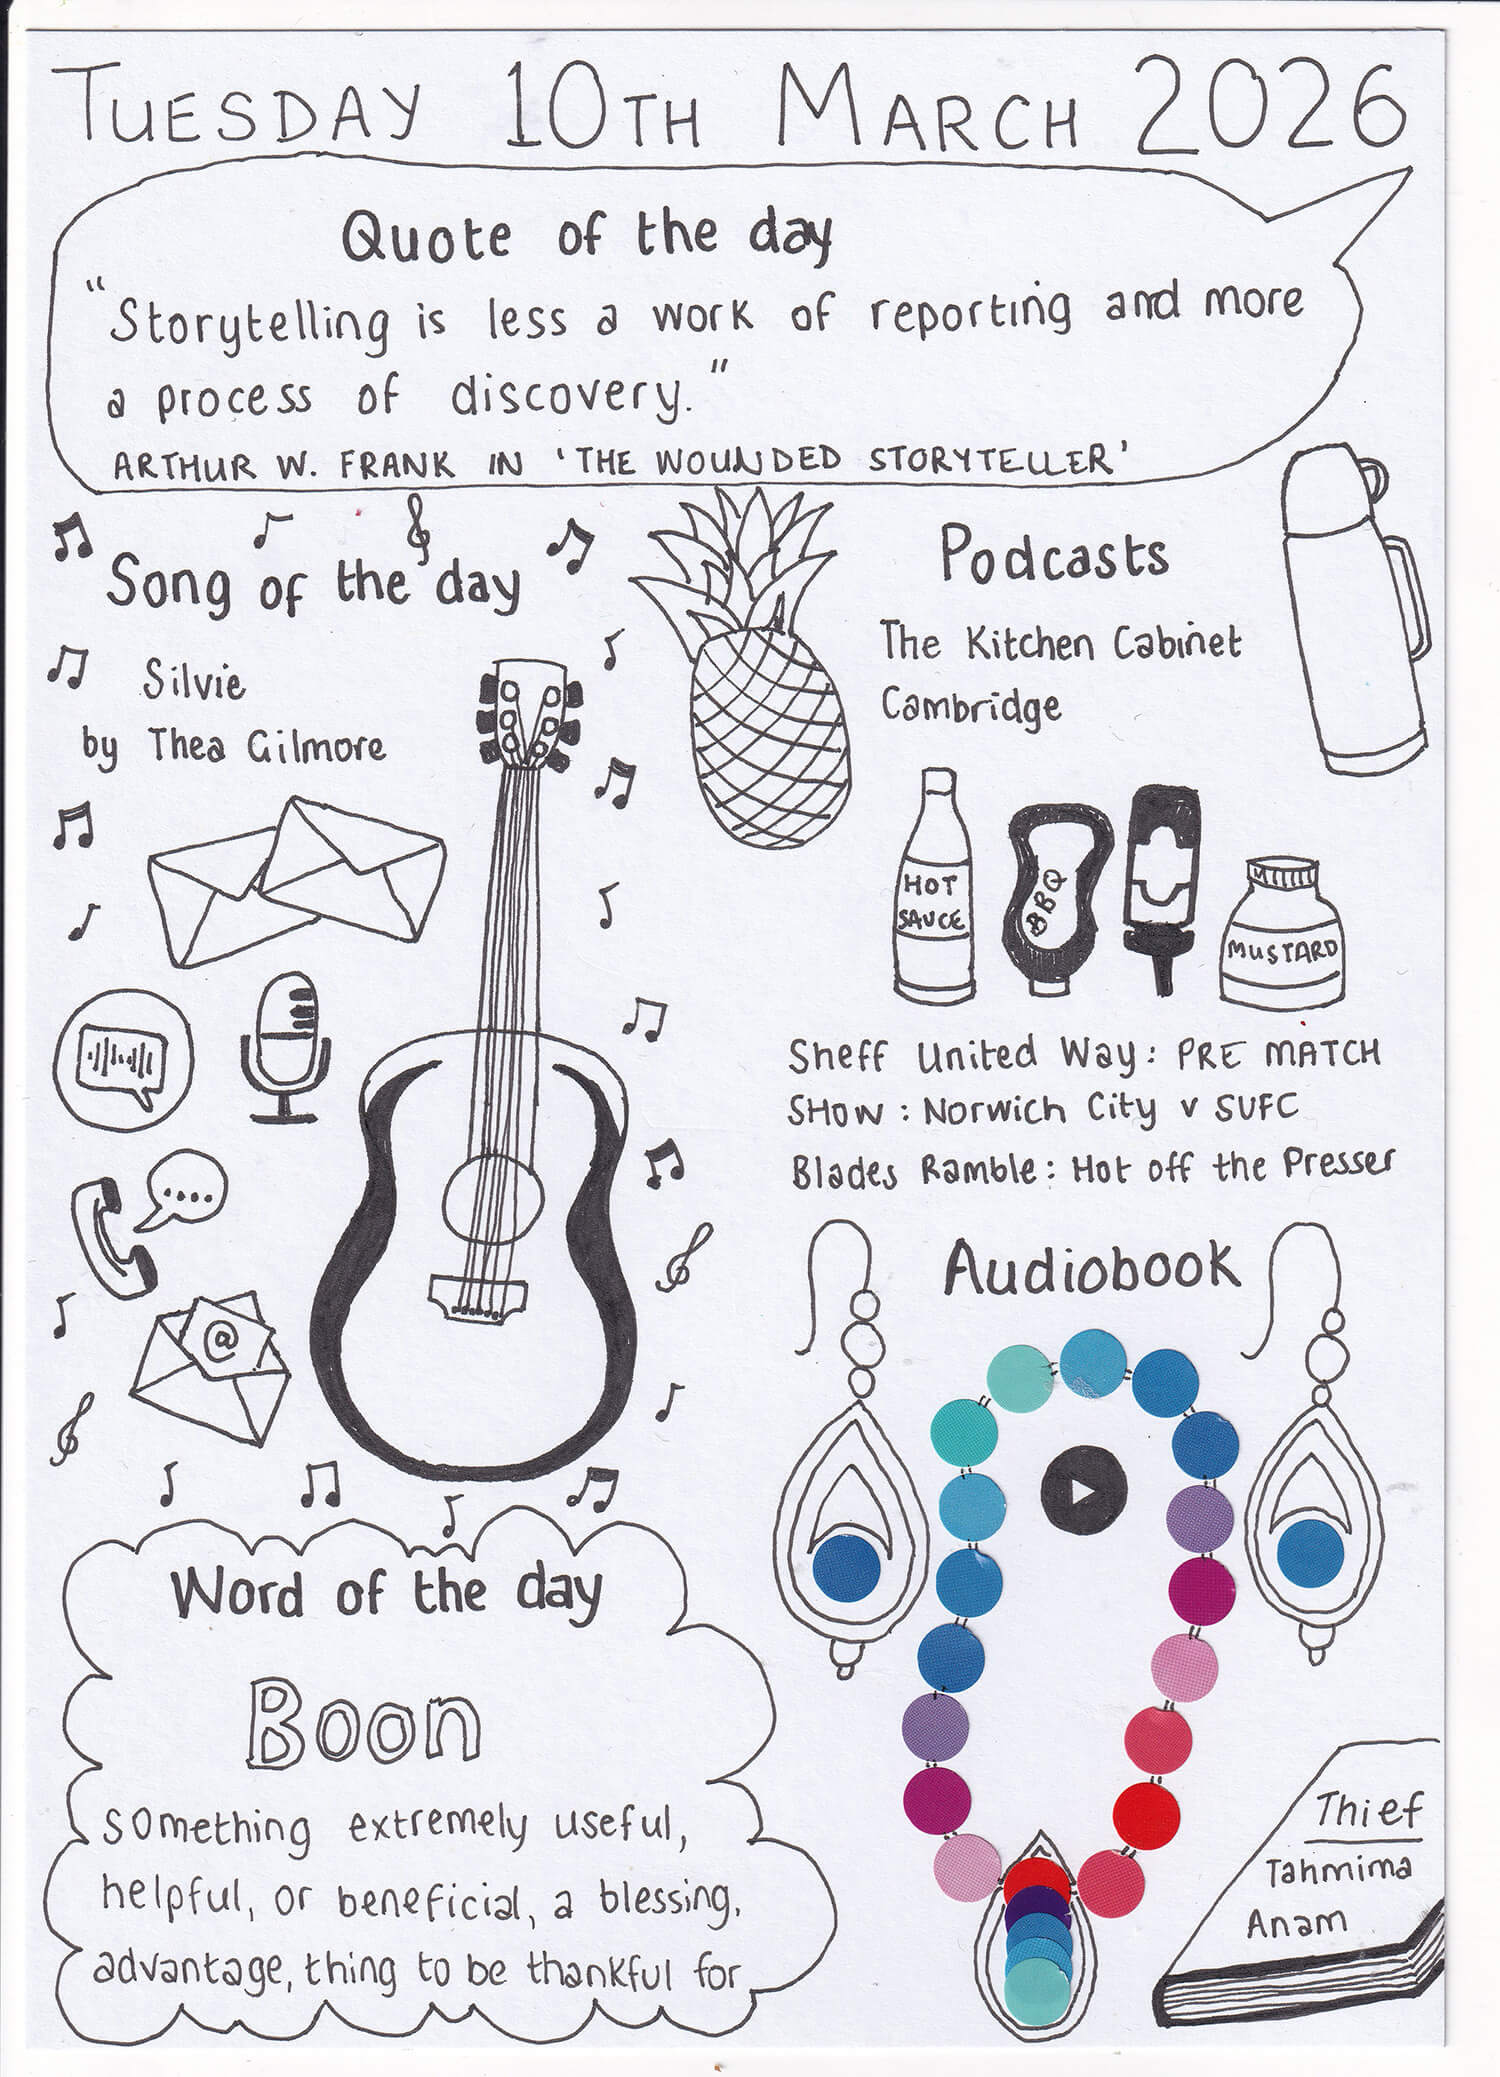 TUESDAY 10TH MARCH 2026
Quote of the day
"Storytelling is less a work of reporting and more
a process of discovery."
ARTHUR W. FRANK IN 'THE WOUNDED STORYTELLER'
Song of the day
Silvie
by Thea Gilmore
@
Word of the day
Boon
something extremely useful,
helpful, or beneficial, a blessing,
advantage, thing to be thankful for
Podcasts
The Kitchen Cabinet
Cambridge
HOT
SAUCE
BBQ
MUSTARD
Sheff United Way: PRE MATCH
SHOW: Norwich City v SUFC
Blades Ramble: Hot off the Presser
Audiobook
Thief
Tahmima
Anam